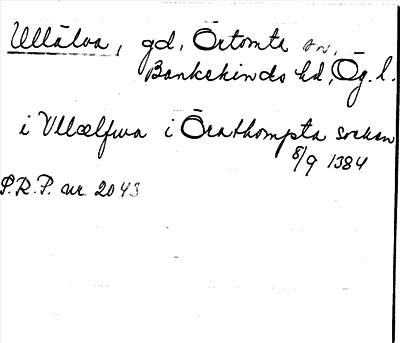 Ullälva, gd, Örtomta sn,
Bankekinds hd, Ög. l.
i Vllælfwa i Örathompta socken
8/9 1384
S.R.P. nr 2043